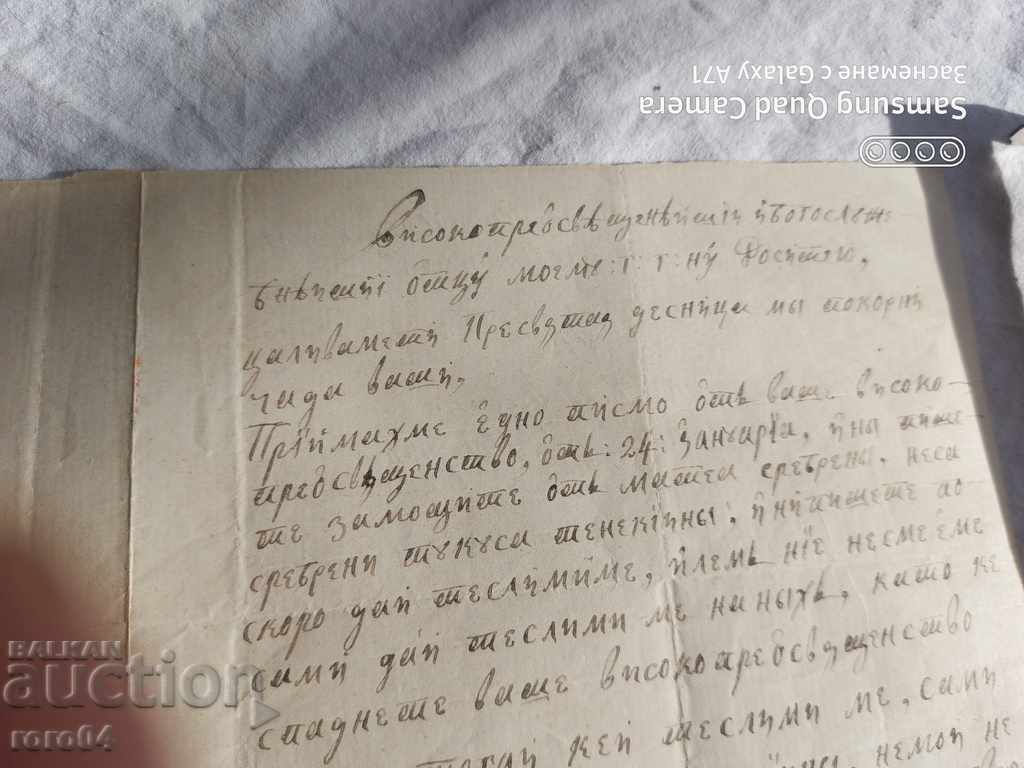 Samsung Quad Camera
Заснемане с Galaxy A71
Високопреосвѣщенѣйшій и богослуж-
ѣнѣйшій ѻтцу моемъ: г: г: ну Досиѳею,
цалувамети Пресвятая десница мы покорни
чада ваши,
Пріймахме едно писмо ѻтъ ваше високо-
преосвященство, ѻтъ: 24: їануаріа, и ны пише-
те за мощите ѻтъ матеа сребрены, неса
сребрени тукуса тенекіины: и ни пишете
скоро дай теслимиме, и лемъ ніе несмееме
сами дай теслими ме на ныхъ, като ке
спаднете ваше високопреосвященство
тогай кей теслими ме, сами
немой не
BALKAN
auction
roro04